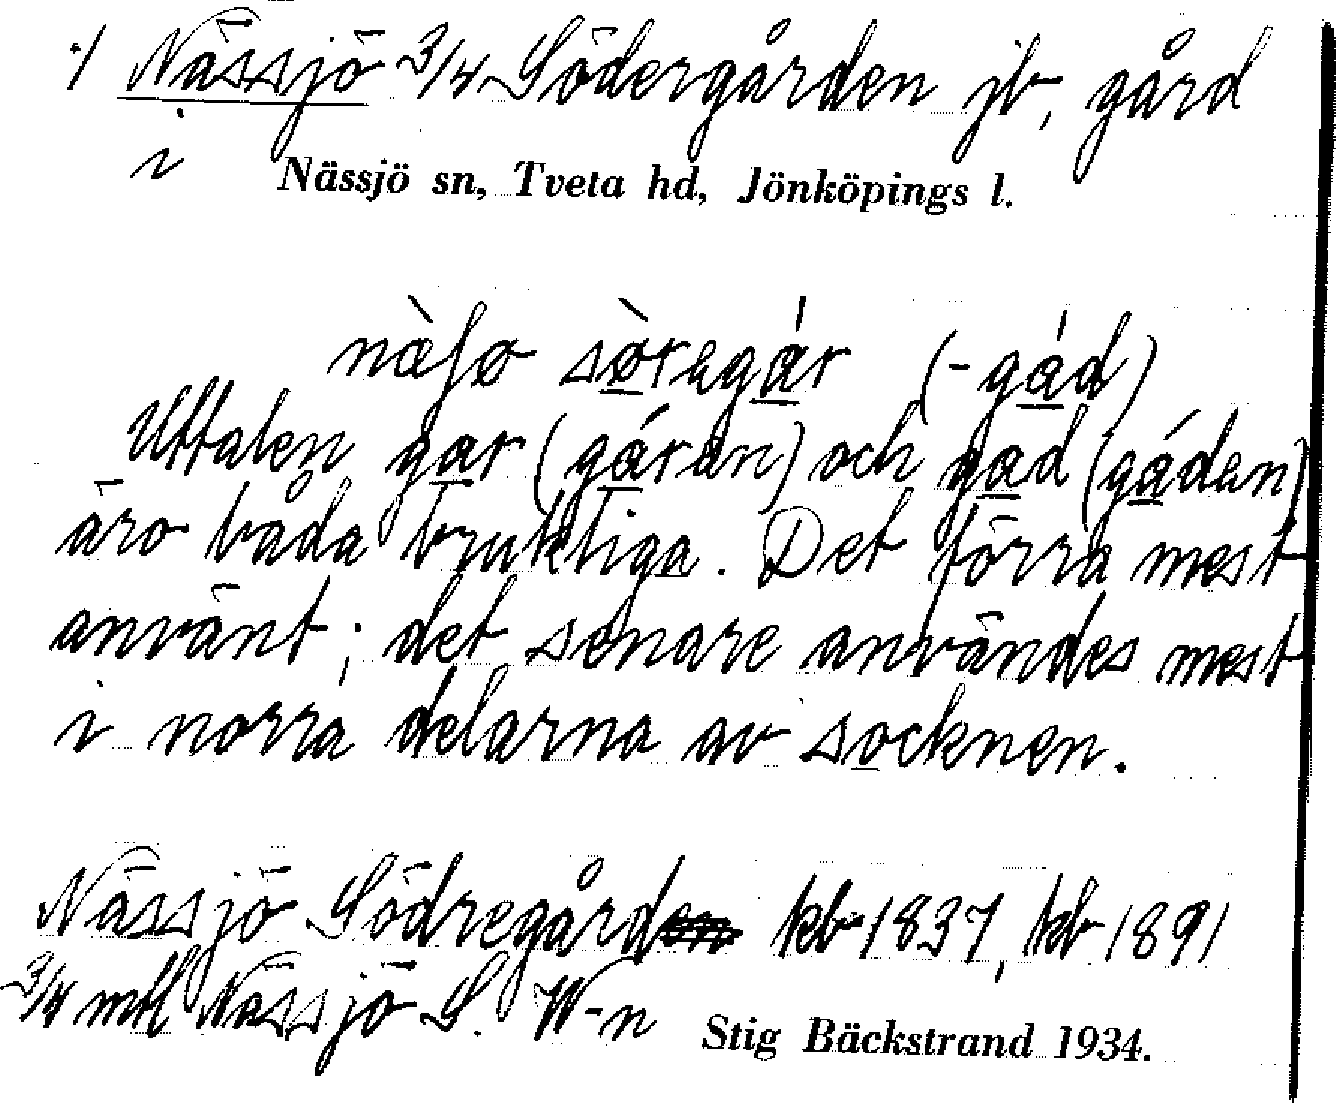 1/ Nässjö 3/4 Södergården jb, gård
i Nässjö sn, Tveta hd, Jönköpings l.
nàʃø sòregár (-gád)
Uttalen gar (gáran) och gad (gáden)
äro båda brukliga. Det förra mest
använt; det senare användes mest
i norra delarna av socknen.
Nässjö Södregård kb 1837, kb 1891
3/4 mtl Nässjö S. W-n
Stig Bäckstrand 1934.